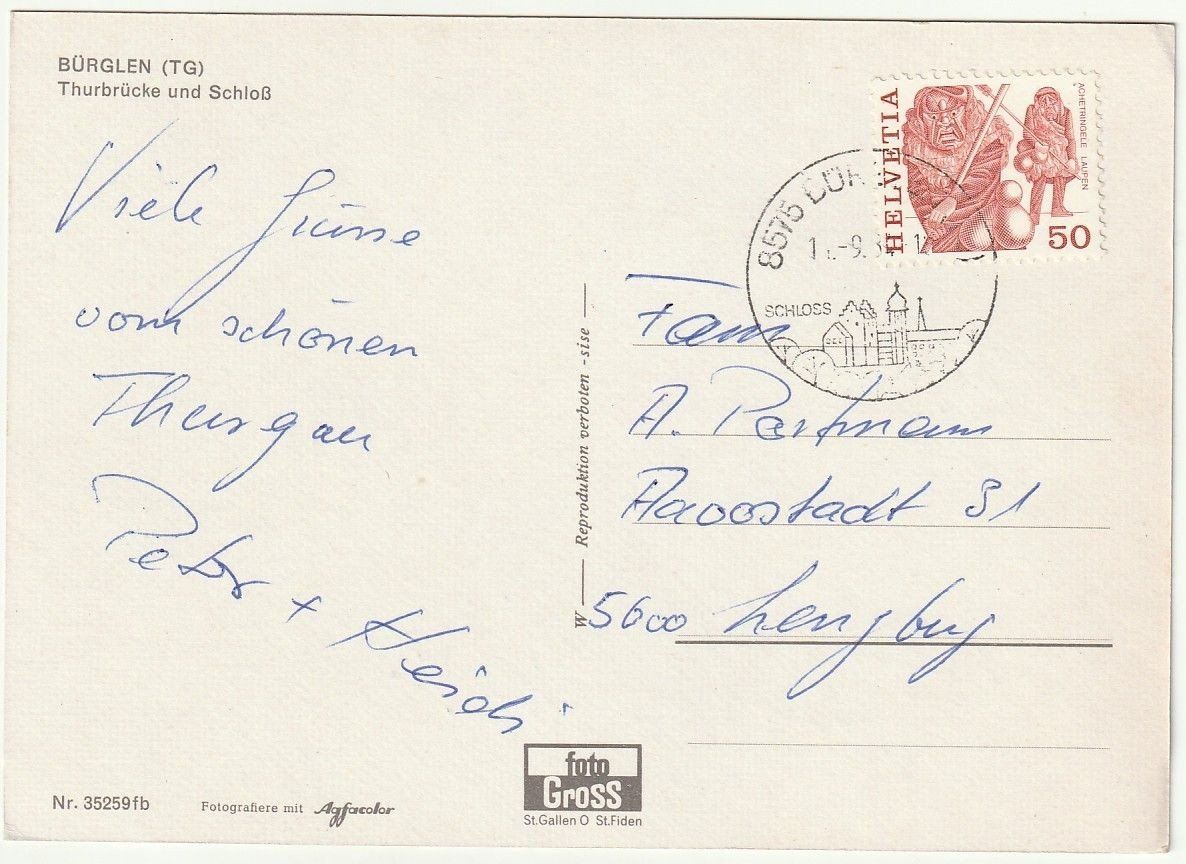 BÜRGLEN (TG)
Thurbrücke und Schloß
Viele Grüsse
vom schönen
Thurgau
Peter + Heidi
HELVETIA
ACHETRINGELE LAUPEN
50
8575 BÜR
-9.8
SCHLOSS
Fam
A. Partmann
5600 Lenzburg
W — Reproduktion verboten - sise —
Nr. 35259fb
Fotografiere mit Agfacolor
foto
Gross
St.Gallen O St.Fiden